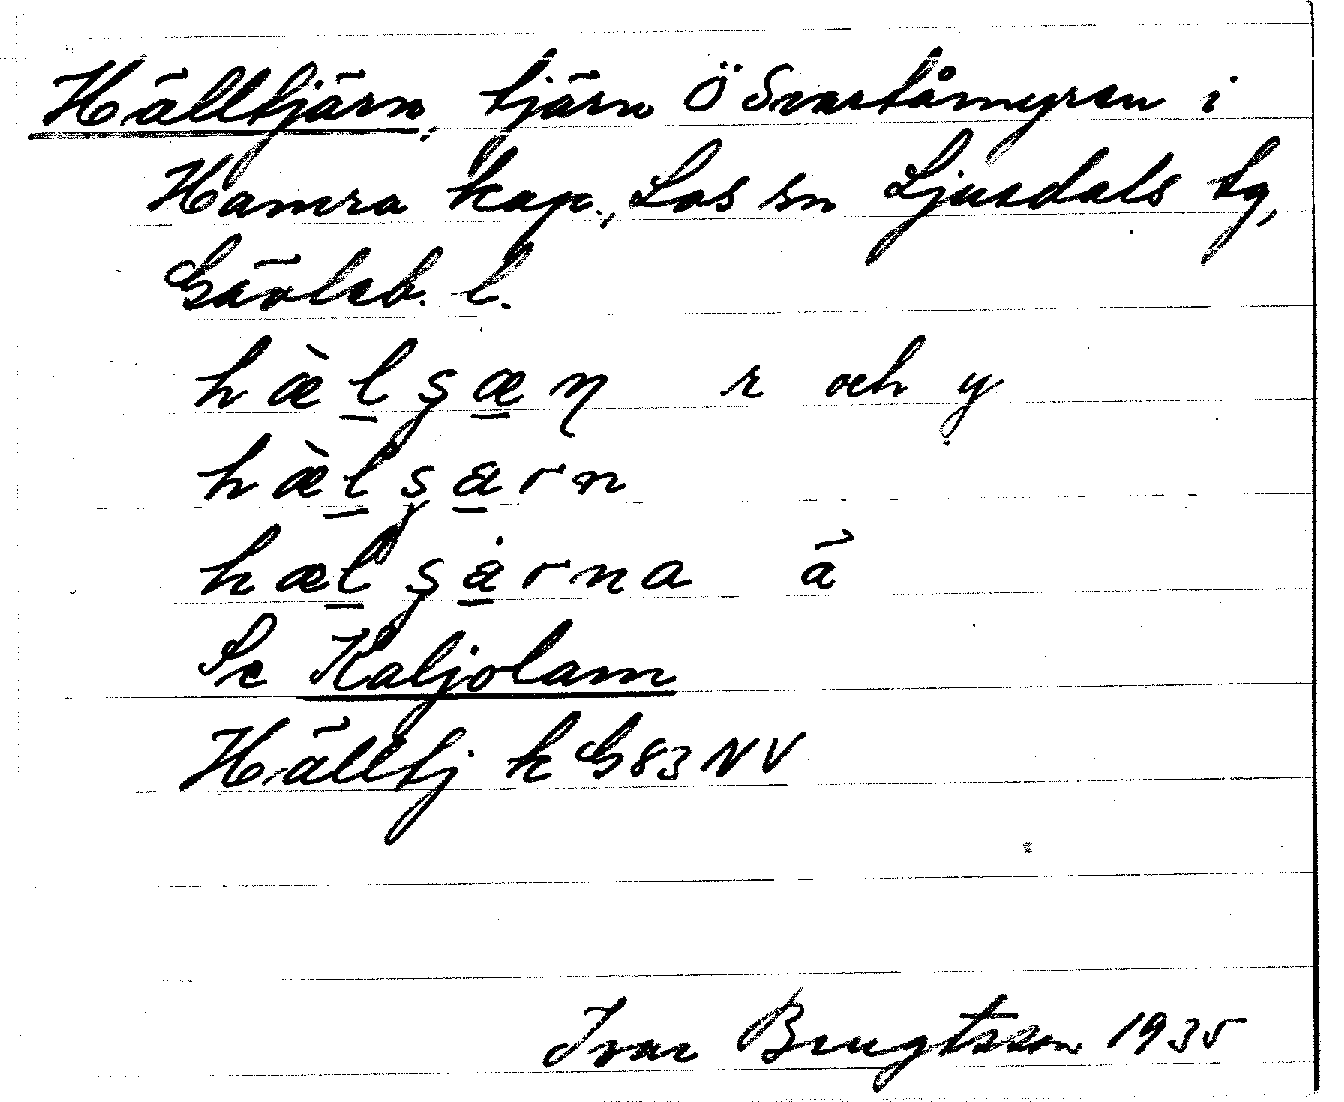 Hälltjärn, tjärn Ö Svartåmyren i
Hamra kap., Los sn Ljusdals tg,
Gävleb. l.
hæ̀l̲şæ̲ɳ r och y
hæ̀l̲şa̲rn
hæl̲şȧ̲rna ä
Se Kaljolam
Hälltj k G83NV
Ivar Bengtsson 1935